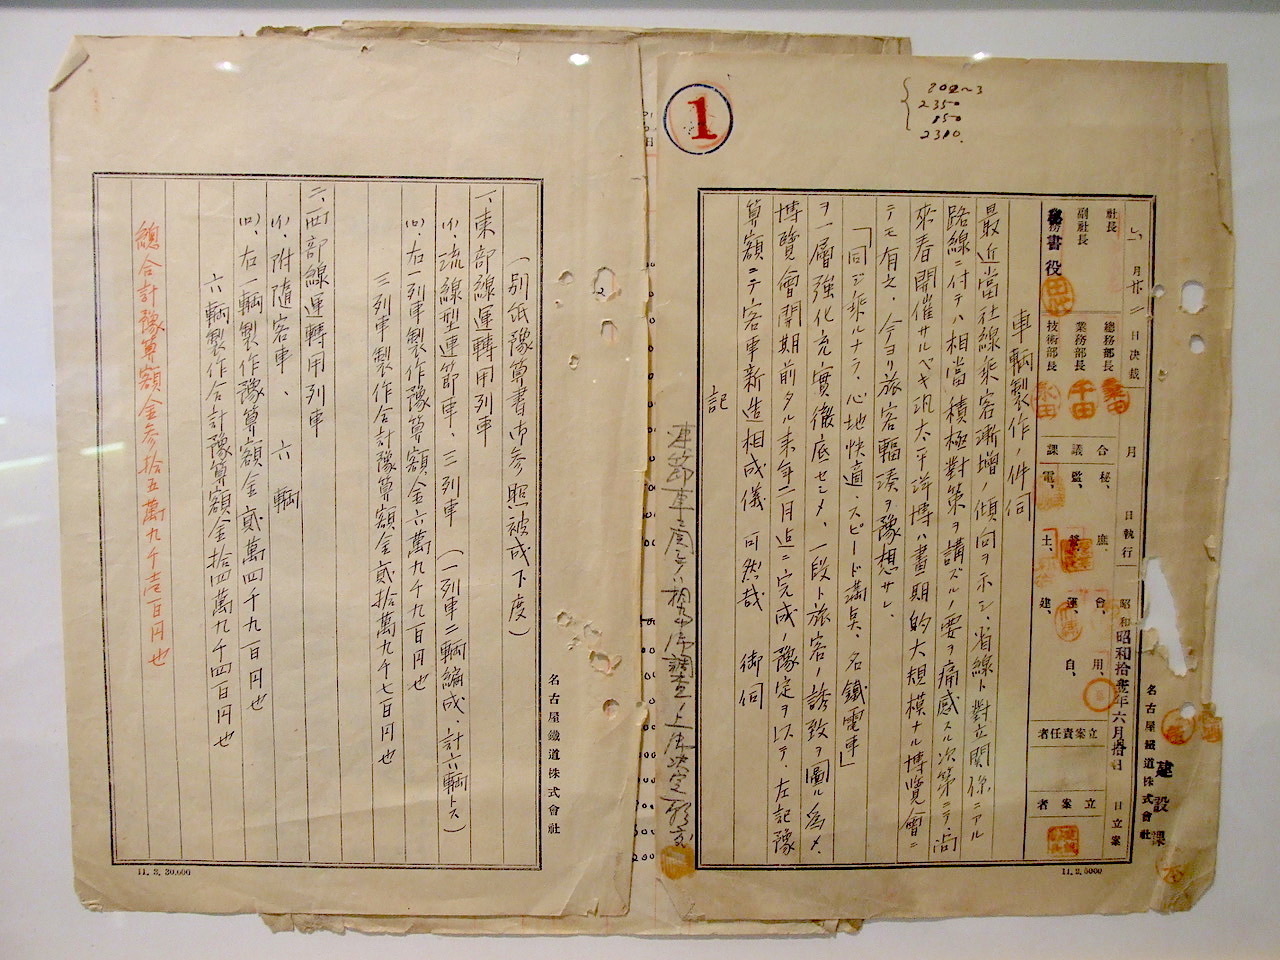 1
802~3
2350
150
2310.
建設課
名古屋鐵道株式會社
昭和拾壹年六月拾日 日立案
月 日執行
六月廿二日決裁
社長
副社長
秘書役
總務部長
業務部長
技術部長
合議課
秘、庶、會、用
監、營、運、自、
電、土、建、
立案責任者
立案者
車輌製作ノ件伺
最近當社線乘客漸增ノ傾向ヲ示シ、省線ト對立關係ニアル
路線ニ付テハ相當積極對策ヲ講ズルノ要ヲ痛感スル次第ニテ、尚
來春開催サルベキ汎太平洋博ハ畫期的大規模ナル博覽會ニ
テモ有之、今ヨリ旅客輻湊ヲ豫想サレ、
「同ジ乘ルナラ、心地快適、スピード滿点、名鐵電車」
ヲ一層強化充實徹底セシメ、一段ト旅客ノ誘致ヲ圖ル爲メ、
博覽會開期前タル來年二月迄ニ完成ノ豫定ヲ以テ、左記豫
算額ニテ客車新造相成儀 可然哉 御伺
記
連節車ニ関シテハ
調査ノ上御決定願度
11.2.5000
(別紙豫算書御參照被成下度)
一、東部線運轉用列車
(イ)、流線型連節車、三列車 (一列車二輌編成、計六輌トス)
(ロ)、右一列車製作豫算額金六萬九千九百円也
三列車製作合計豫算額金貳拾萬九千七百円也
二、西部線運轉用列車
(イ)、附隨客車、六輌
(ロ)、右一輌製作豫算額金貳萬四千九百円也
六輌製作合計豫算額金拾四萬九千四百円也
總合計豫算額金參拾五萬九千壱百円也
名古屋鐵道株式會社
11.3.30,000